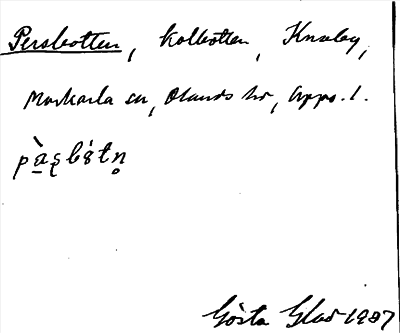 Persbotten, kolbotten, Knaby,
Morkarla sn, Olands hd, Upps. l.
Gösta Glad 1937